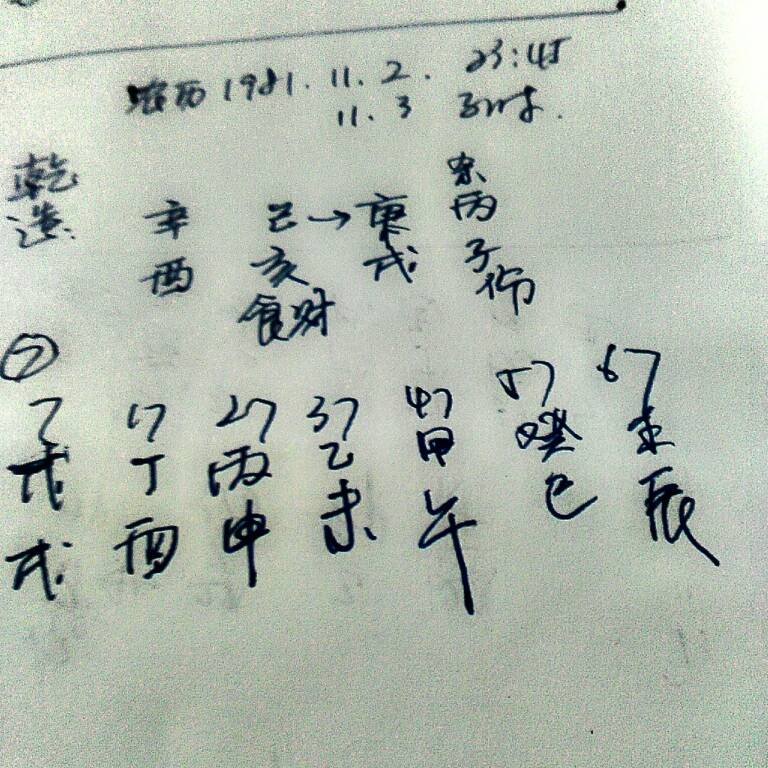 农历 1981. 11. 2. 23:45
11. 3 子时.
乾 杀
造 辛 己→庚 丙
酉 亥 戌 子
食财 伤
⑦
7 17 27 37 47 57 67
戊 丁 丙 乙 甲 癸
戌 酉 申 未 午 巳 辰